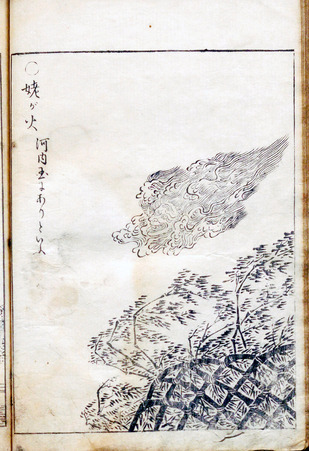 〇姥が火
河内国にありといふ